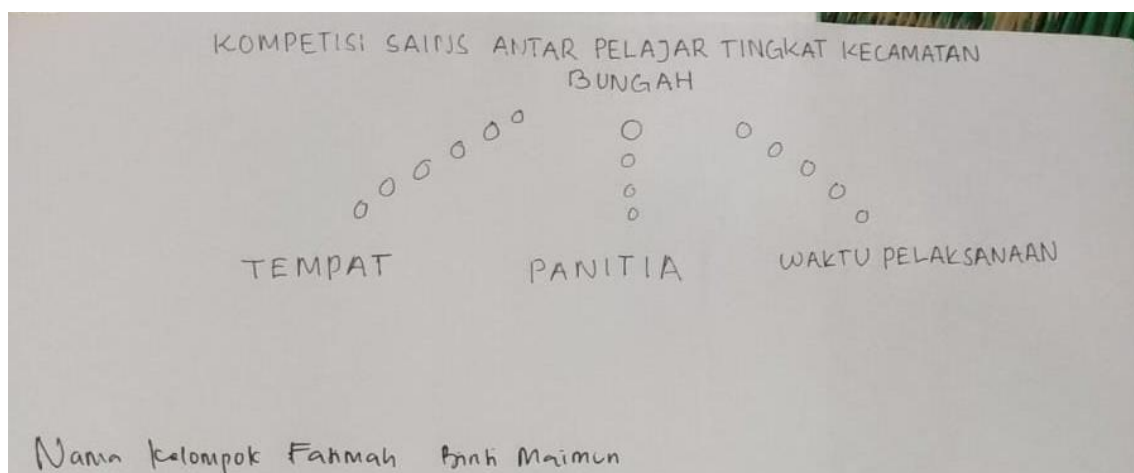 KOMPETISI SAINS ANTAR PELAJAR TINGKAT KECAMATAN
BUNGAH
TEMPAT
PANITIA
WAKTU PELAKSANAAN
Nama Kelompok Fatimah Binti Maimun